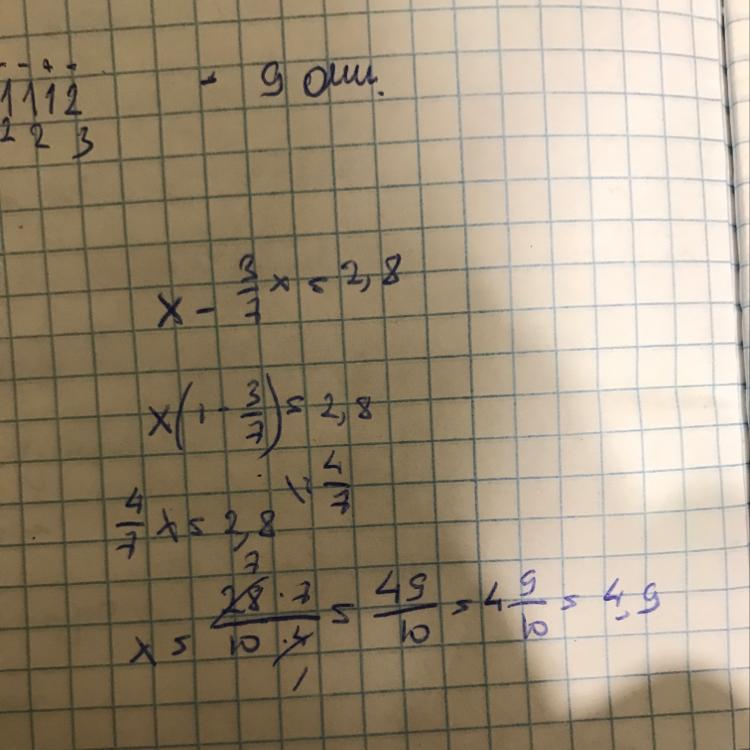 1112 - 9 ош.
2 2 3
x - 3/7 x = 2,8
x(1 - 3/7) = 2,8
4/7 x = 2,8 \: 4/7
x = 28 7 · 7 / 10 · 4 1 = 49/10 = 4 9/10 = 4,9